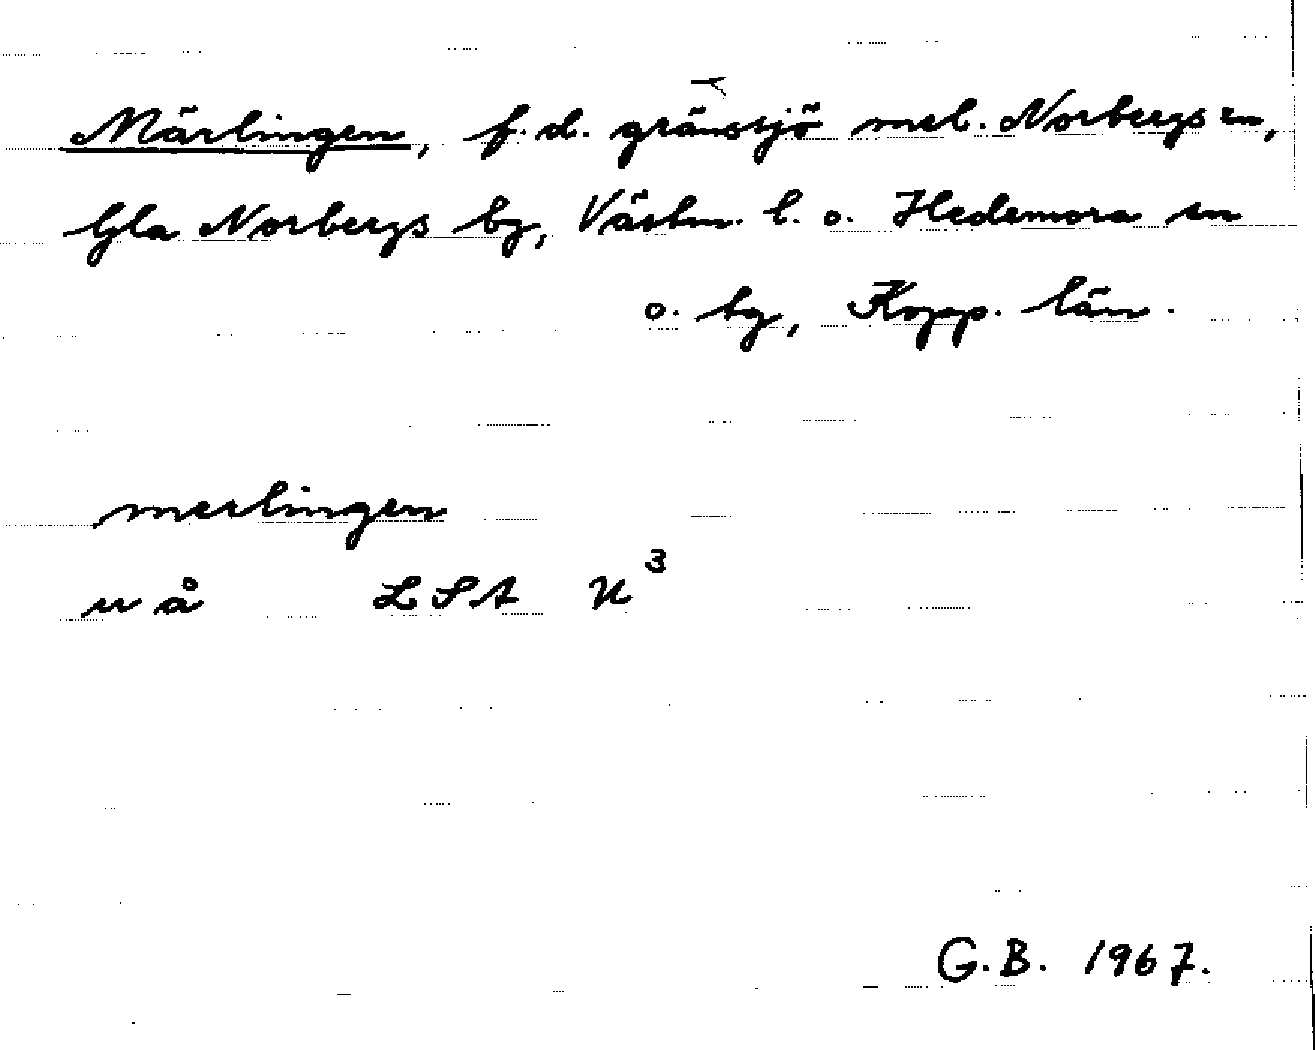 Märlingen, f.d. gränssjö mel. Norbergs sn,
Gla Norbergs bg, Västm. l. o. Hedemora sn
o. bg, Kopp. län.
merlingen
u å LSA U³
G.B. 1967.